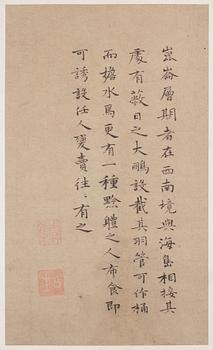 崑崙層期者在西南境與海島相接其
處有蔽日之大鵬設截其羽管可作桶
而擔水焉更有一種黔體之人布食即
可誘設任人變賣往〻有之